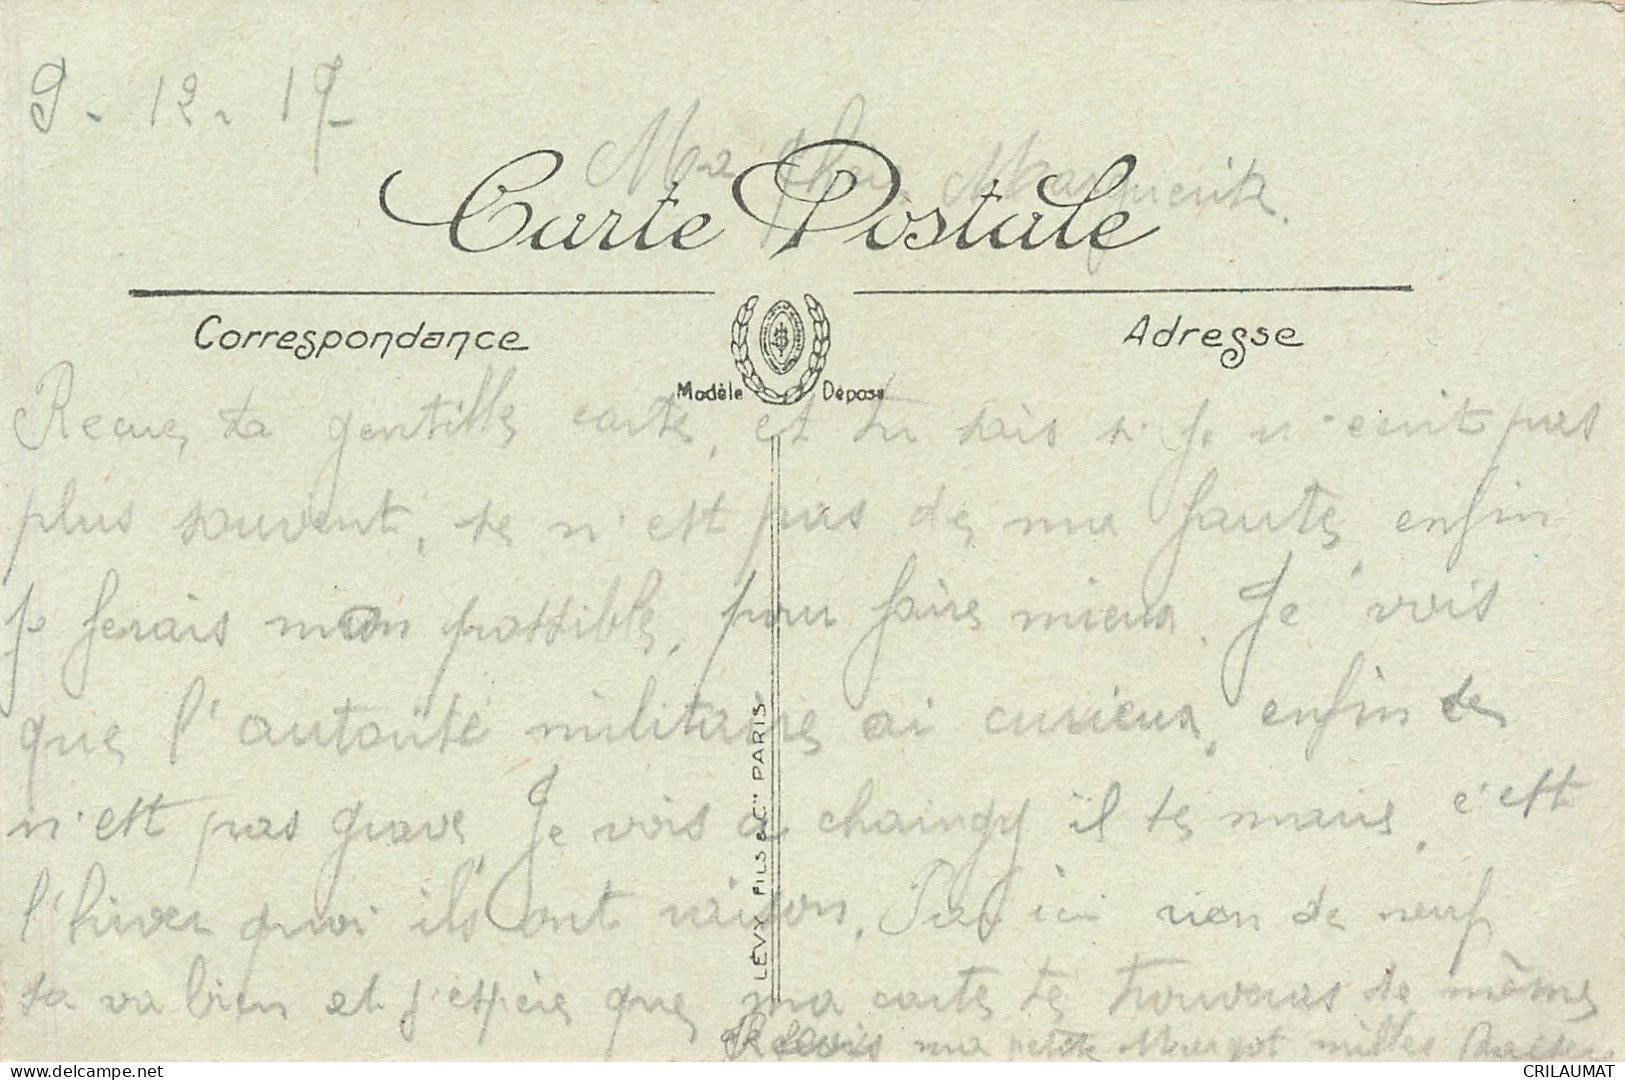 9 - 12 - 17
Ma chère Marguerite.
Carte Postale
Correspondance
Adresse
Modèle Déposé
Recue ta gentille carte, et tu sais si Je n'ecrit pas
plus souvent, se n'est pas de ma faute, enfin
je ferais mon possible, pour faire mieux. Je vois
que l'autorité militaire ai curieux, enfin se
n'est pas grave, Je vois a chaingy il se marie, c'est
l'hiver quoi ils ont raison. Par ici rien de neuf
sa va bien et j'espère que ma carte te trouveras de même
Recois ma petite Margot milles Baisers
LÉVY FILS & Cie PARIS
CRILAUMAT